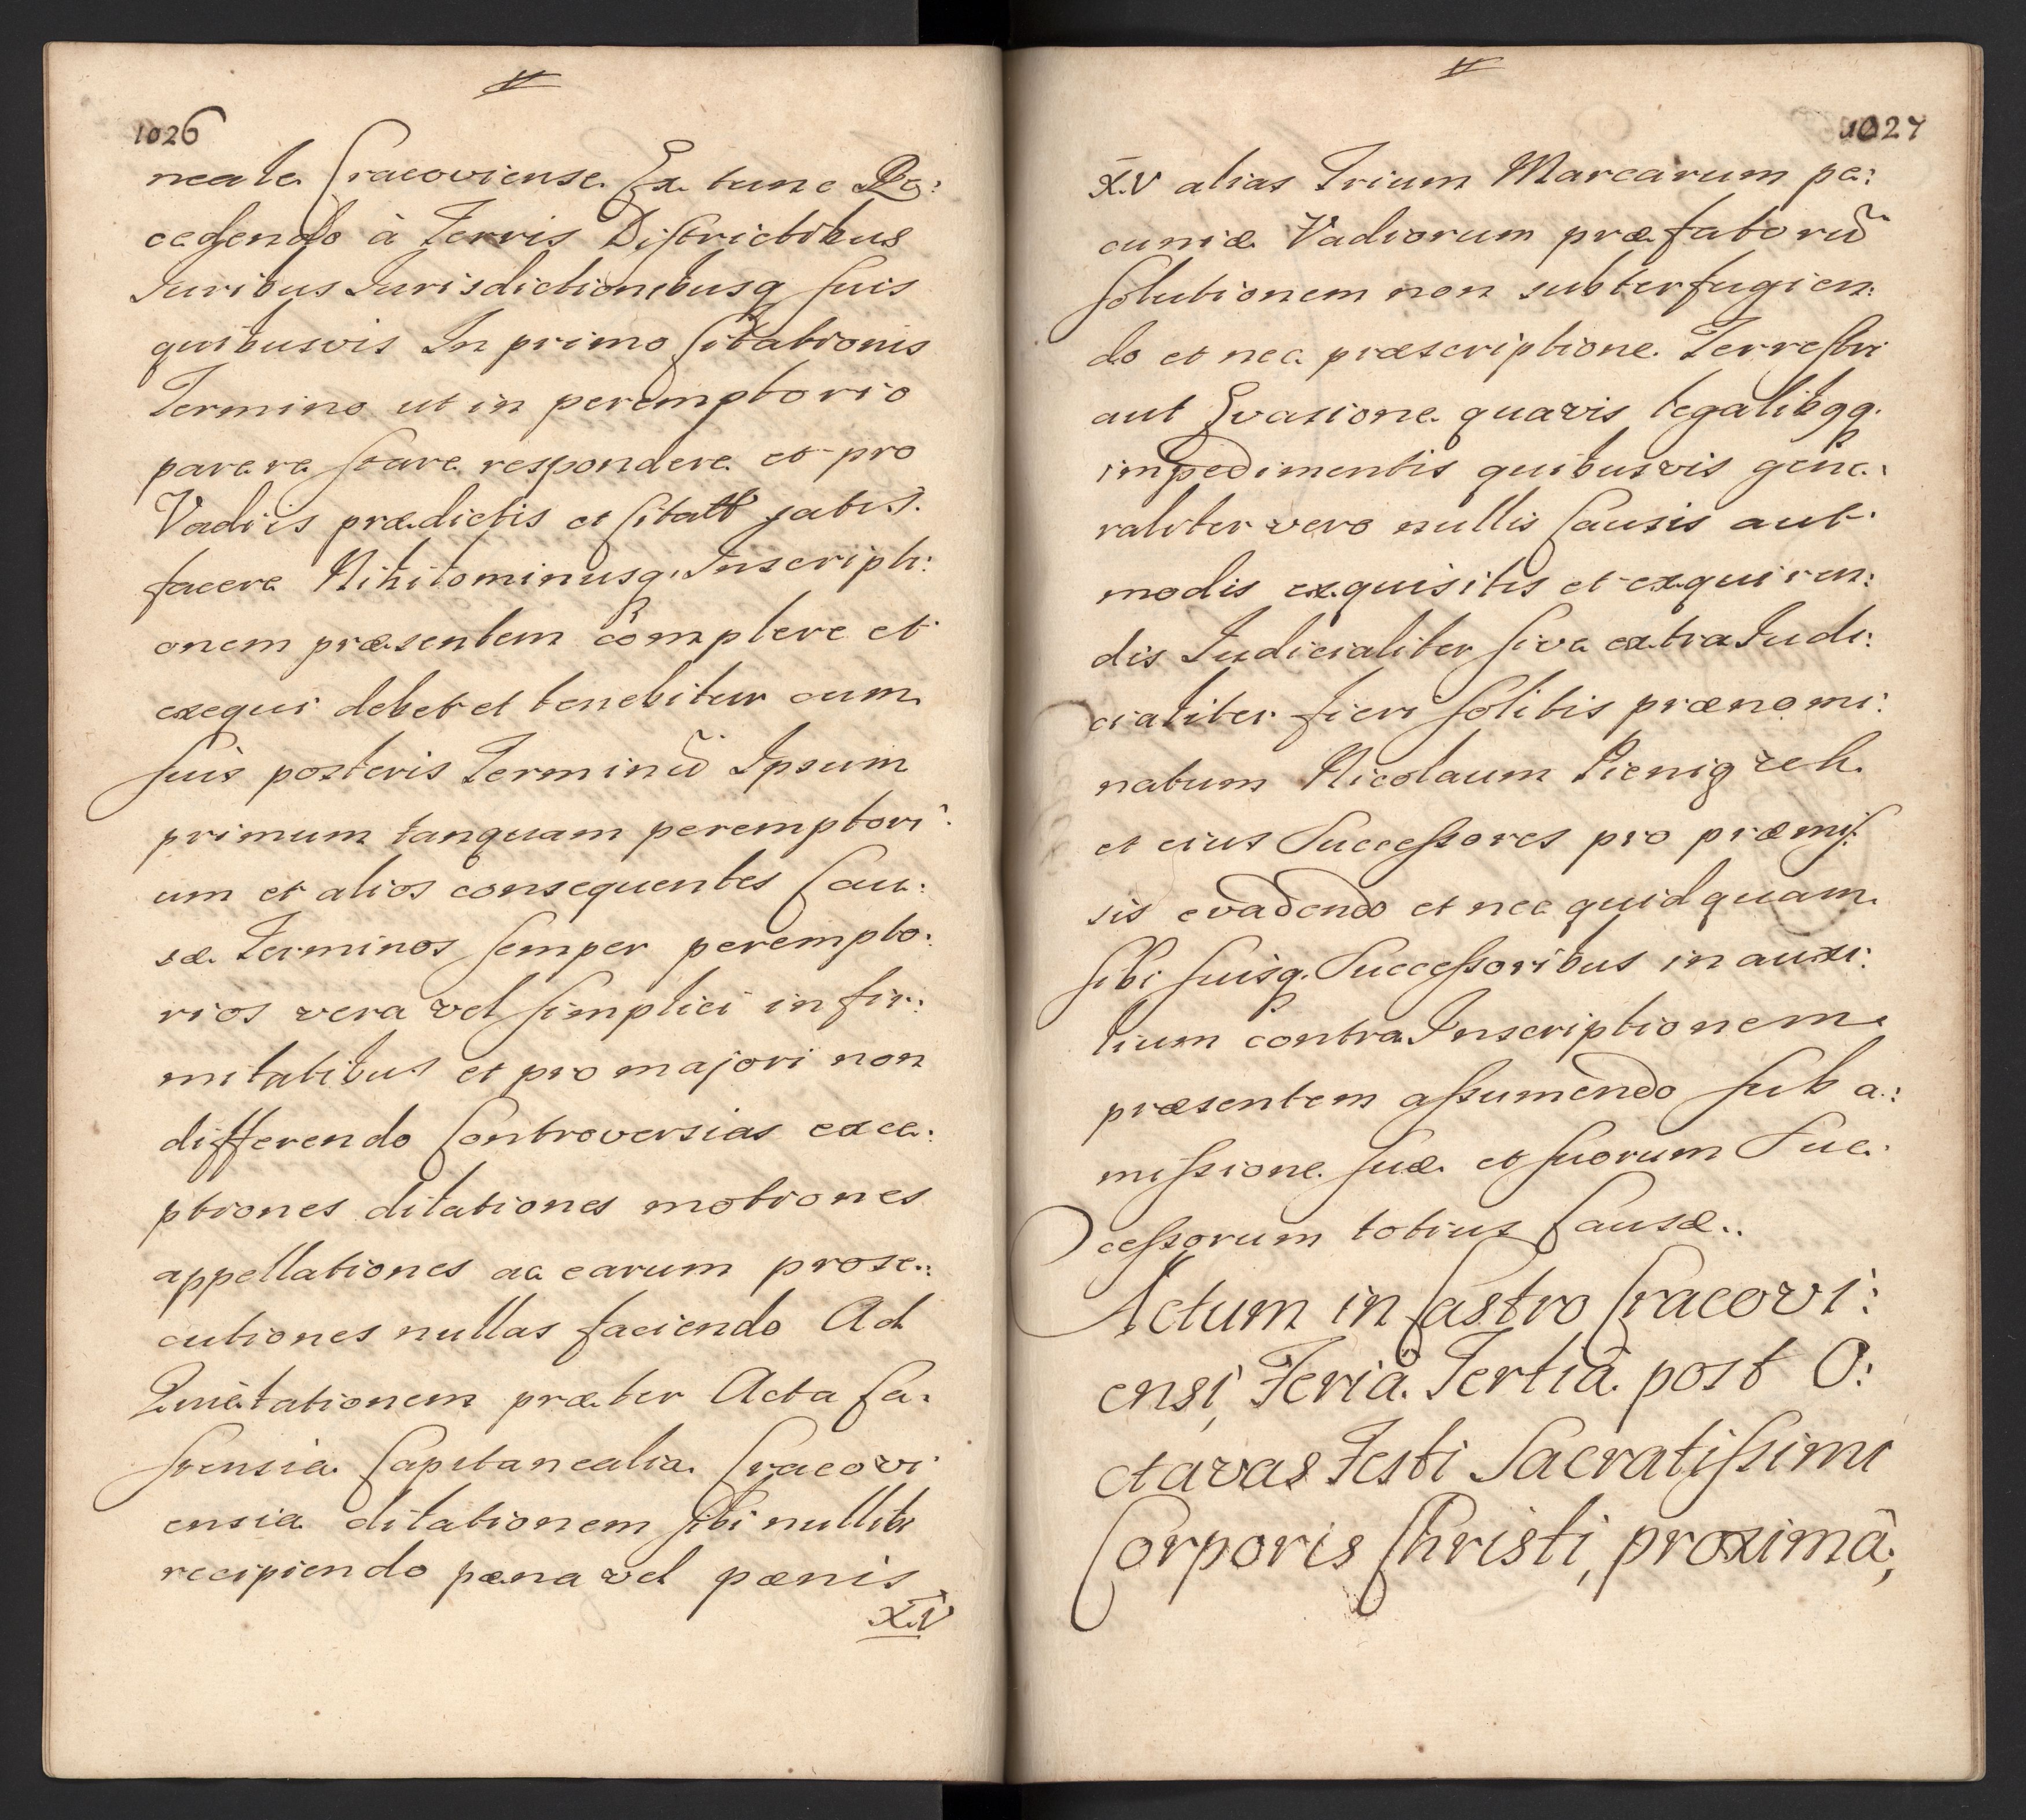 1026
neale Cracoviense Ex tunc Re:
cedendo à Terris Districtibus
Iuribus Iurisdictionibusq suis
quibusvis In primo Citationis
Termino ut in peremptorio
parere stare respondere et pro
Vadiis prædictis et Citatt satis:
facere Nihilominusq. Inscripti:
onem præsentem complere et
exequi debet et tenebitur cum
suis posteris Terminũ Ipsum
primum tanquam peremptori:
um et alios consequentes Cau:
sæ Terminos semper perempto:
rios vera vel simplici infir:
mitatibus et pro majori non
differendo Controversias exce:
ptiones dilationes motiones
appellationes ac earum prose:
cutiones nullas faciendo Ad
Quietationem præter Acta Ca:
strensia Capitanealia Cracovi
ensia dilationem sibi nullibi
recipiendo pæna vel pænis
XV
1027
XV alias Trium Marcarum pe:
cuniæ Vadiorum præfatorũ
solutionem non subterfugien:
do et nec præscriptione Terrestri
aut Evasione quavis legalibqq.
impedimentis quibusvis gene:
raliter vero nullis Causis aut
modis exquisitis et exquiren:
dis Iudicialiter sive extraIudi:
cialiter fieri solitis prænomi:
natum Nicolaum Pieniązek
et eius Successores pro præmis:
sis evadendo et nec quidquam
sibi suisq. Successoribus in auxi:
lium contra Inscriptionem
præsentem assumendo sub a:
missione suæ et suorum Suc:
cessorum totius Causæ.
Actum in Castro Cracovi:
ensi, Feriâ Tertiâ post O:
ctavas Festi Sacratissimi
Corporis Christi, proximâ;